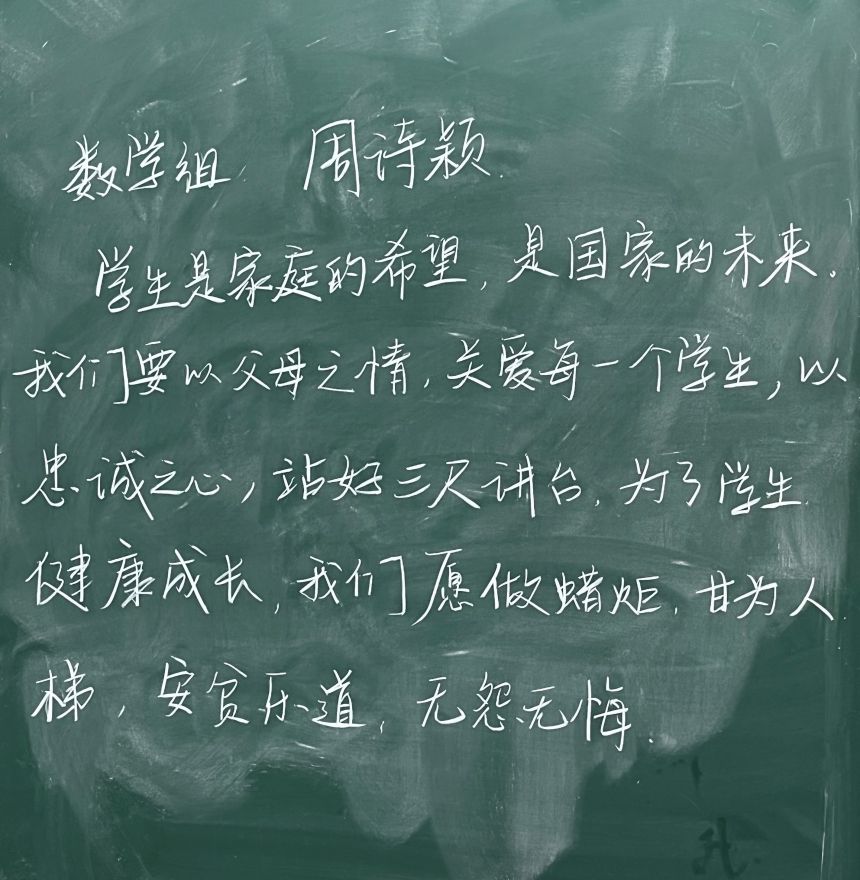 数学组 周诗颖.
学生是家庭的希望,是国家的未来。
我们要以父母之情,关爱每一个学生,以
忠诚之心,站好三尺讲台,为了学生
健康成长,我们愿做蜡炬,甘为人
梯,安贫乐道,无怨无悔.